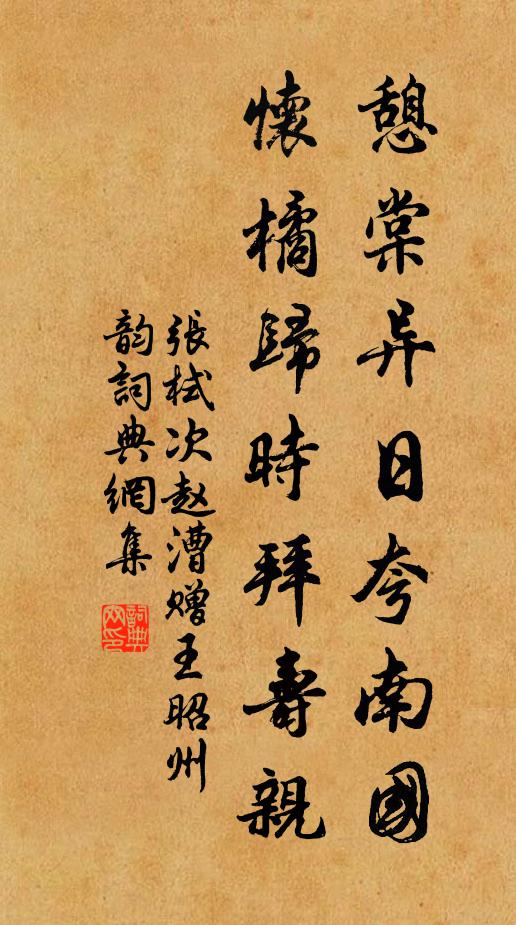 憩棠异日夸南國
懷橘歸時拜壽親
張栻次赵漕赠王昭州
韵詞典網集
詞典网印